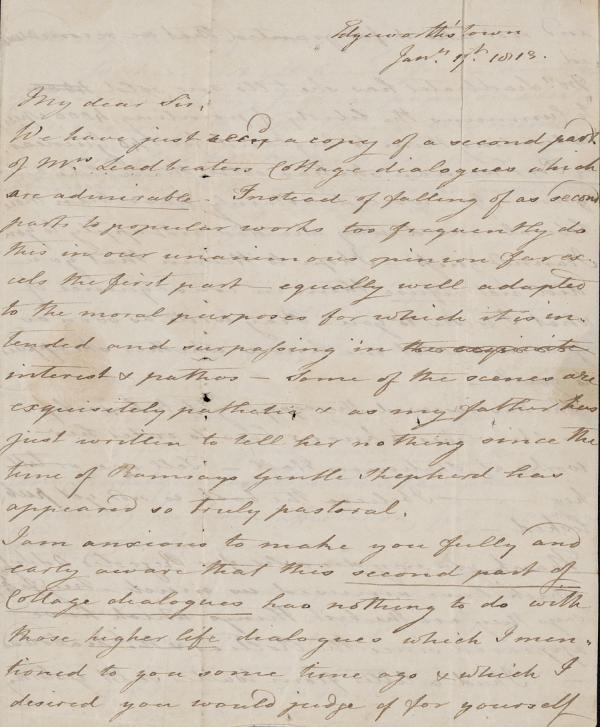 Edgeworth's town
Jany. 17th. 1813.
My dear Sir,
We have just recd a copy of a second part
of Mrs Leadbeaters Cottage dialogues which
are admirable. Instead of falling of as second
parts to popular works too frequently do
this in our unanimous opinion far ex-
cels the first part equally well adapted
to the moral purposes for which it is in-
tended and surpassing in the exquisite
interest & pathos – Some of the scenes are
exquisitely pathetic & as my father has
just written to tell her nothing since the
time of Ramsays Gentle Shepherd has
appeared so truly pastoral.
I am anxious to make you fully and
early aware that this second part of
Cottage dialogues has nothing to do with
those higher life dialogues which I men-
tioned to you some time ago & which I
desired you would judge of for yourself